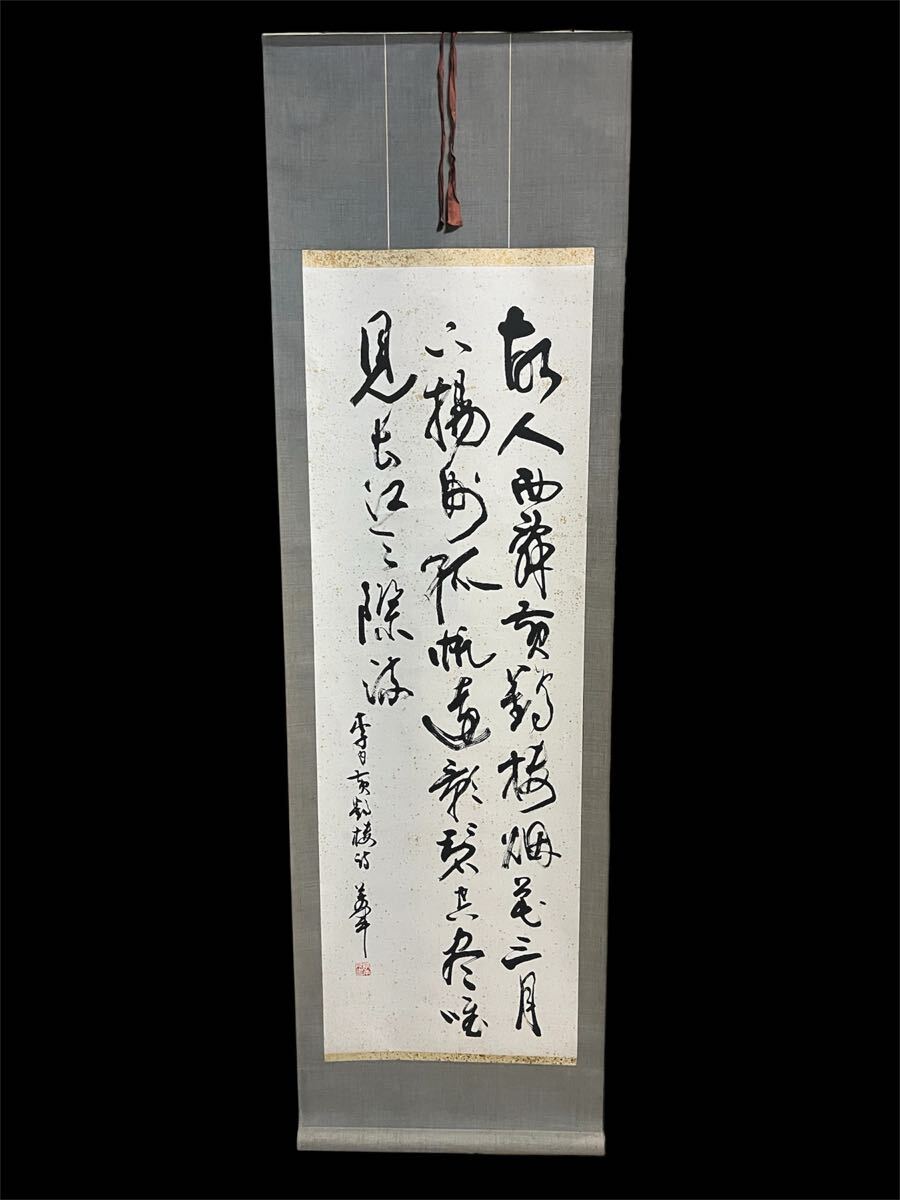 故人西辭黄鶴楼烟花三月
下揚州孤帆遠影碧空尽唯
見長江天際流
李白黄鶴楼詩